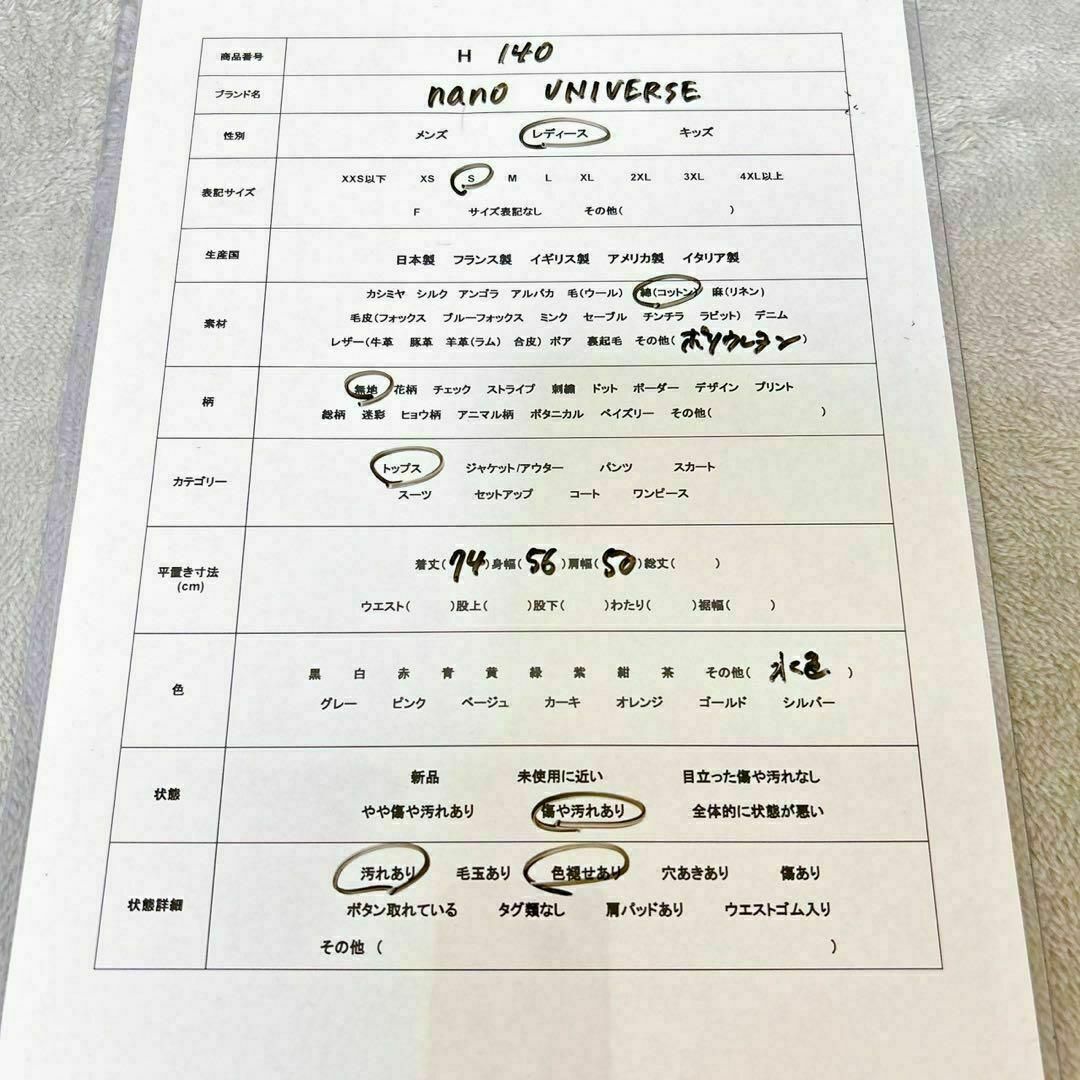 商品番号 H 140
ブランド名 nano UNIVERSE
性別 メンズ レディース キッズ
表記サイズ XXS以下 XS S M L XL 2XL 3XL 4XL以上
F サイズ表記なし その他( )
生産国 日本製 フランス製 イギリス製 アメリカ製 イタリア製
素材 カシミヤ シルク アンゴラ アルパカ 毛(ウール) 綿(コットン) 麻(リネン)
毛皮(フォックス ブルーフォックス ミンク セーブル チンチラ ラビット) デニム
レザー(牛革 豚革 羊革(ラム) 合皮) ボア 裏起毛 その他(ポリウレタン)
柄 無地 花柄 チェック ストライプ 刺繍 ドット ボーダー デザイン プリント
総柄 迷彩 ヒョウ柄 アニマル柄 ボタニカル ペイズリー その他( )
カテゴリー トップス ジャケット/アウター パンツ スカート
スーツ セットアップ コート ワンピース
平置き寸法 着丈(74)身幅(56)肩幅(50)総丈( )
(cm)
ウエスト( )股上( )股下( )わたり( )裾幅( )
色 黒 白 赤 青 黄 緑 紫 紺 茶 その他(水色)
グレー ピンク ベージュ カーキ オレンジ ゴールド シルバー
状態 新品 未使用に近い 目立った傷や汚れなし
やや傷や汚れあり 傷や汚れあり 全体的に状態が悪い
状態詳細 汚れあり 毛玉あり 色褪せあり 穴あきあり 傷あり
ボタン取れている タグ類なし 肩パッドあり ウエストゴム入り
その他 ( )